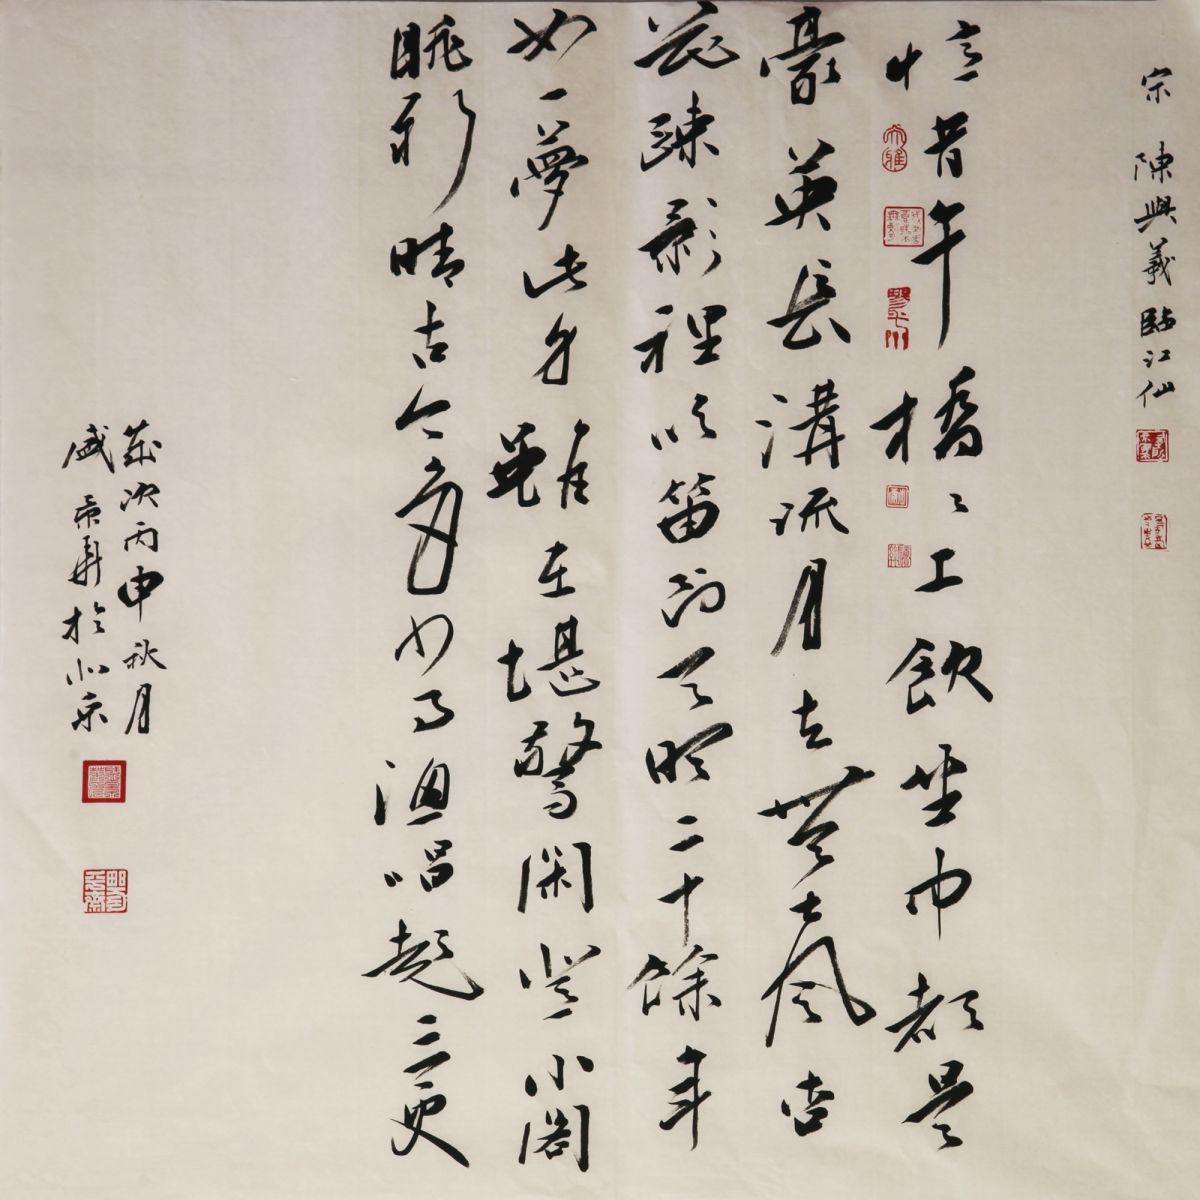 宋 陳與義 臨江仙
憶昔午橋〻上飲坐中都是
豪英長溝流月去無聲杏
花疎影裡吹笛到天明二十餘年
如一夢此身雖在堪驚閑登小閣
眺新晴古今多少事漁唱起三更
歲次丙申秋月
盛 於北京